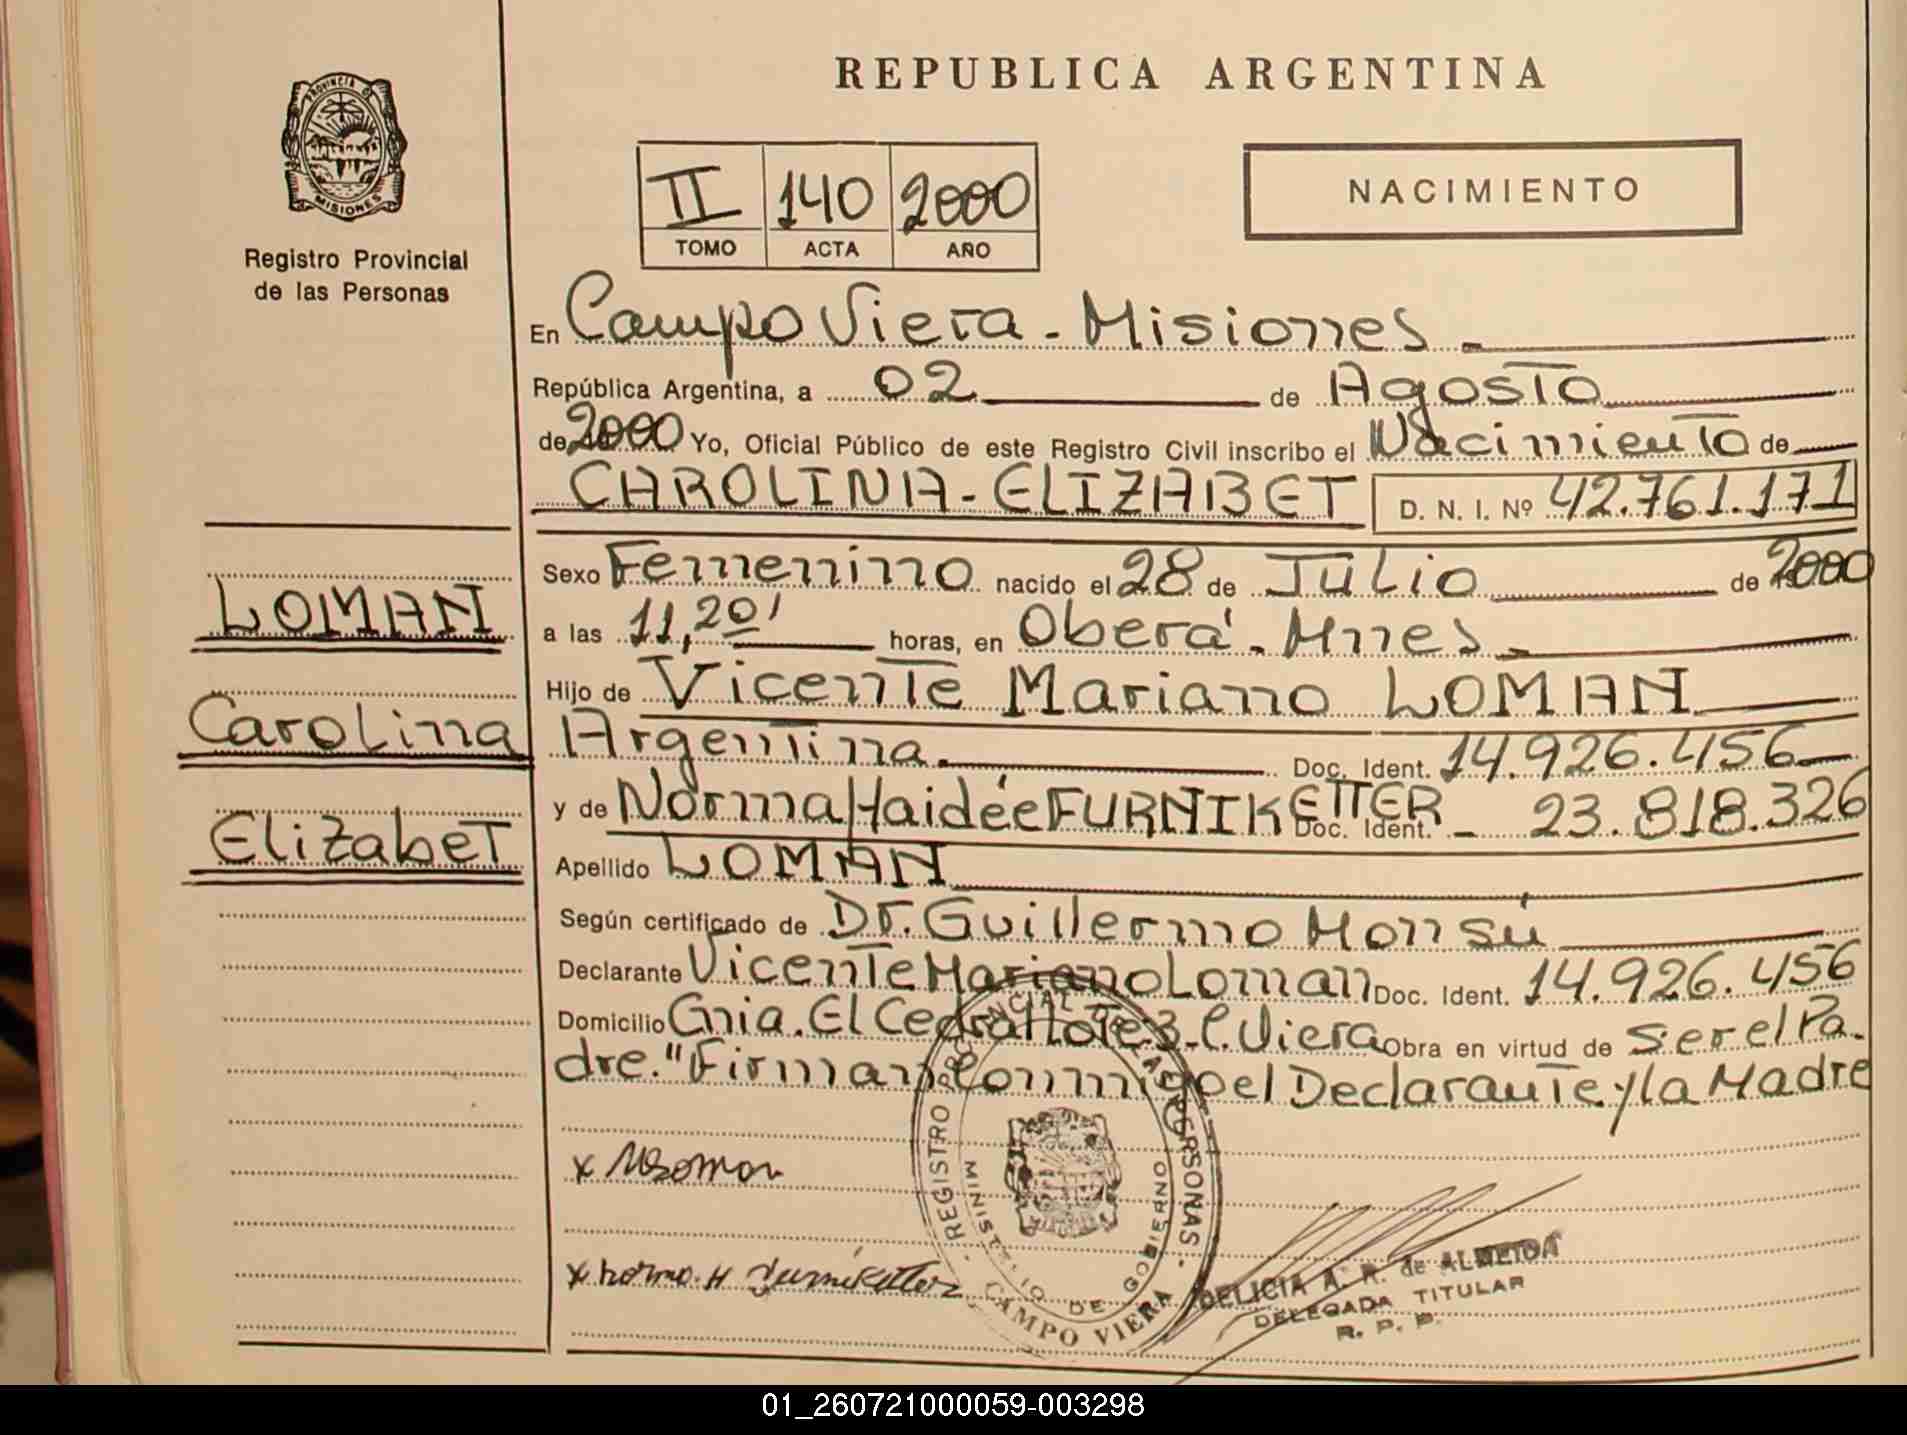 REPUBLICA ARGENTINA
PROVINCIA DE
MISIONES
Registro Provincial
de las Personas
II 140 2000
TOMO ACTA AÑO
NACIMIENTO
En Campo Viera - Misiones
República Argentina, a 02 de Agosto
de 2000 Yo, Oficial Público de este Registro Civil inscribo el Nacimiento de
CAROLINA - ELIZABET D. N. I. Nº 42.761.171
Sexo Femenino nacido el 28 de Julio de 2000
LOMAN
a las 11,20' horas, en Oberá - Mnes
Hijo de Vicente Mariano LOMAN
Carolina
Argentina. Doc. Ident. 14.926.456
y de Norma Haidée FURNIKETTER Doc. Ident. - 23.818.326
Elizabet
Apellido LOMAN
Según certificado de Dr. Guillermo Monsú
Declarante Vicente Mariano Loman Doc. Ident. 14.926.456
Domicilio Cnia. El Cedral lote 3 - C. Viera Obra en virtud de ser el Pa-
dre. "Firman conmigo el Declarante y la Madre
REGISTRO PROVINCIAL DE LAS PERSONAS
MINISTERIO DE GOBIERNO
CAMPO VIERA
x Norma. H Furniketter
DELICIA A. R. de ALMEIDA
DELEGADA TITULAR
R. P. P.
01_260721000059-003298